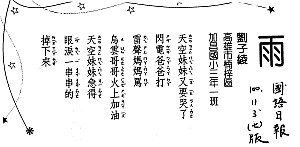 雨
國語日報
100.11.3(七)版
劉子綾
高雄市楠梓區
加昌國小三年一班
天空妹妹又要哭了
閃電爸爸打
雷聲媽媽罵
烏雲哥哥火上加油
天空妹妹急得
眼淚一串串的
掉下來